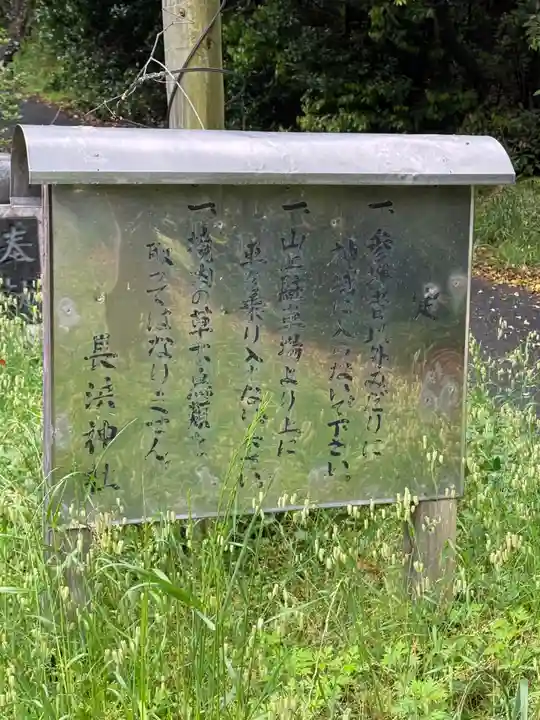 定
一、参拝者以外みだりに
神域に入らないで下さい。
一、山上駐車場より上に
車を乗り入れないで下さい
一、境内の草木鳥類を
取ってはなりません。
長浜神社
奉